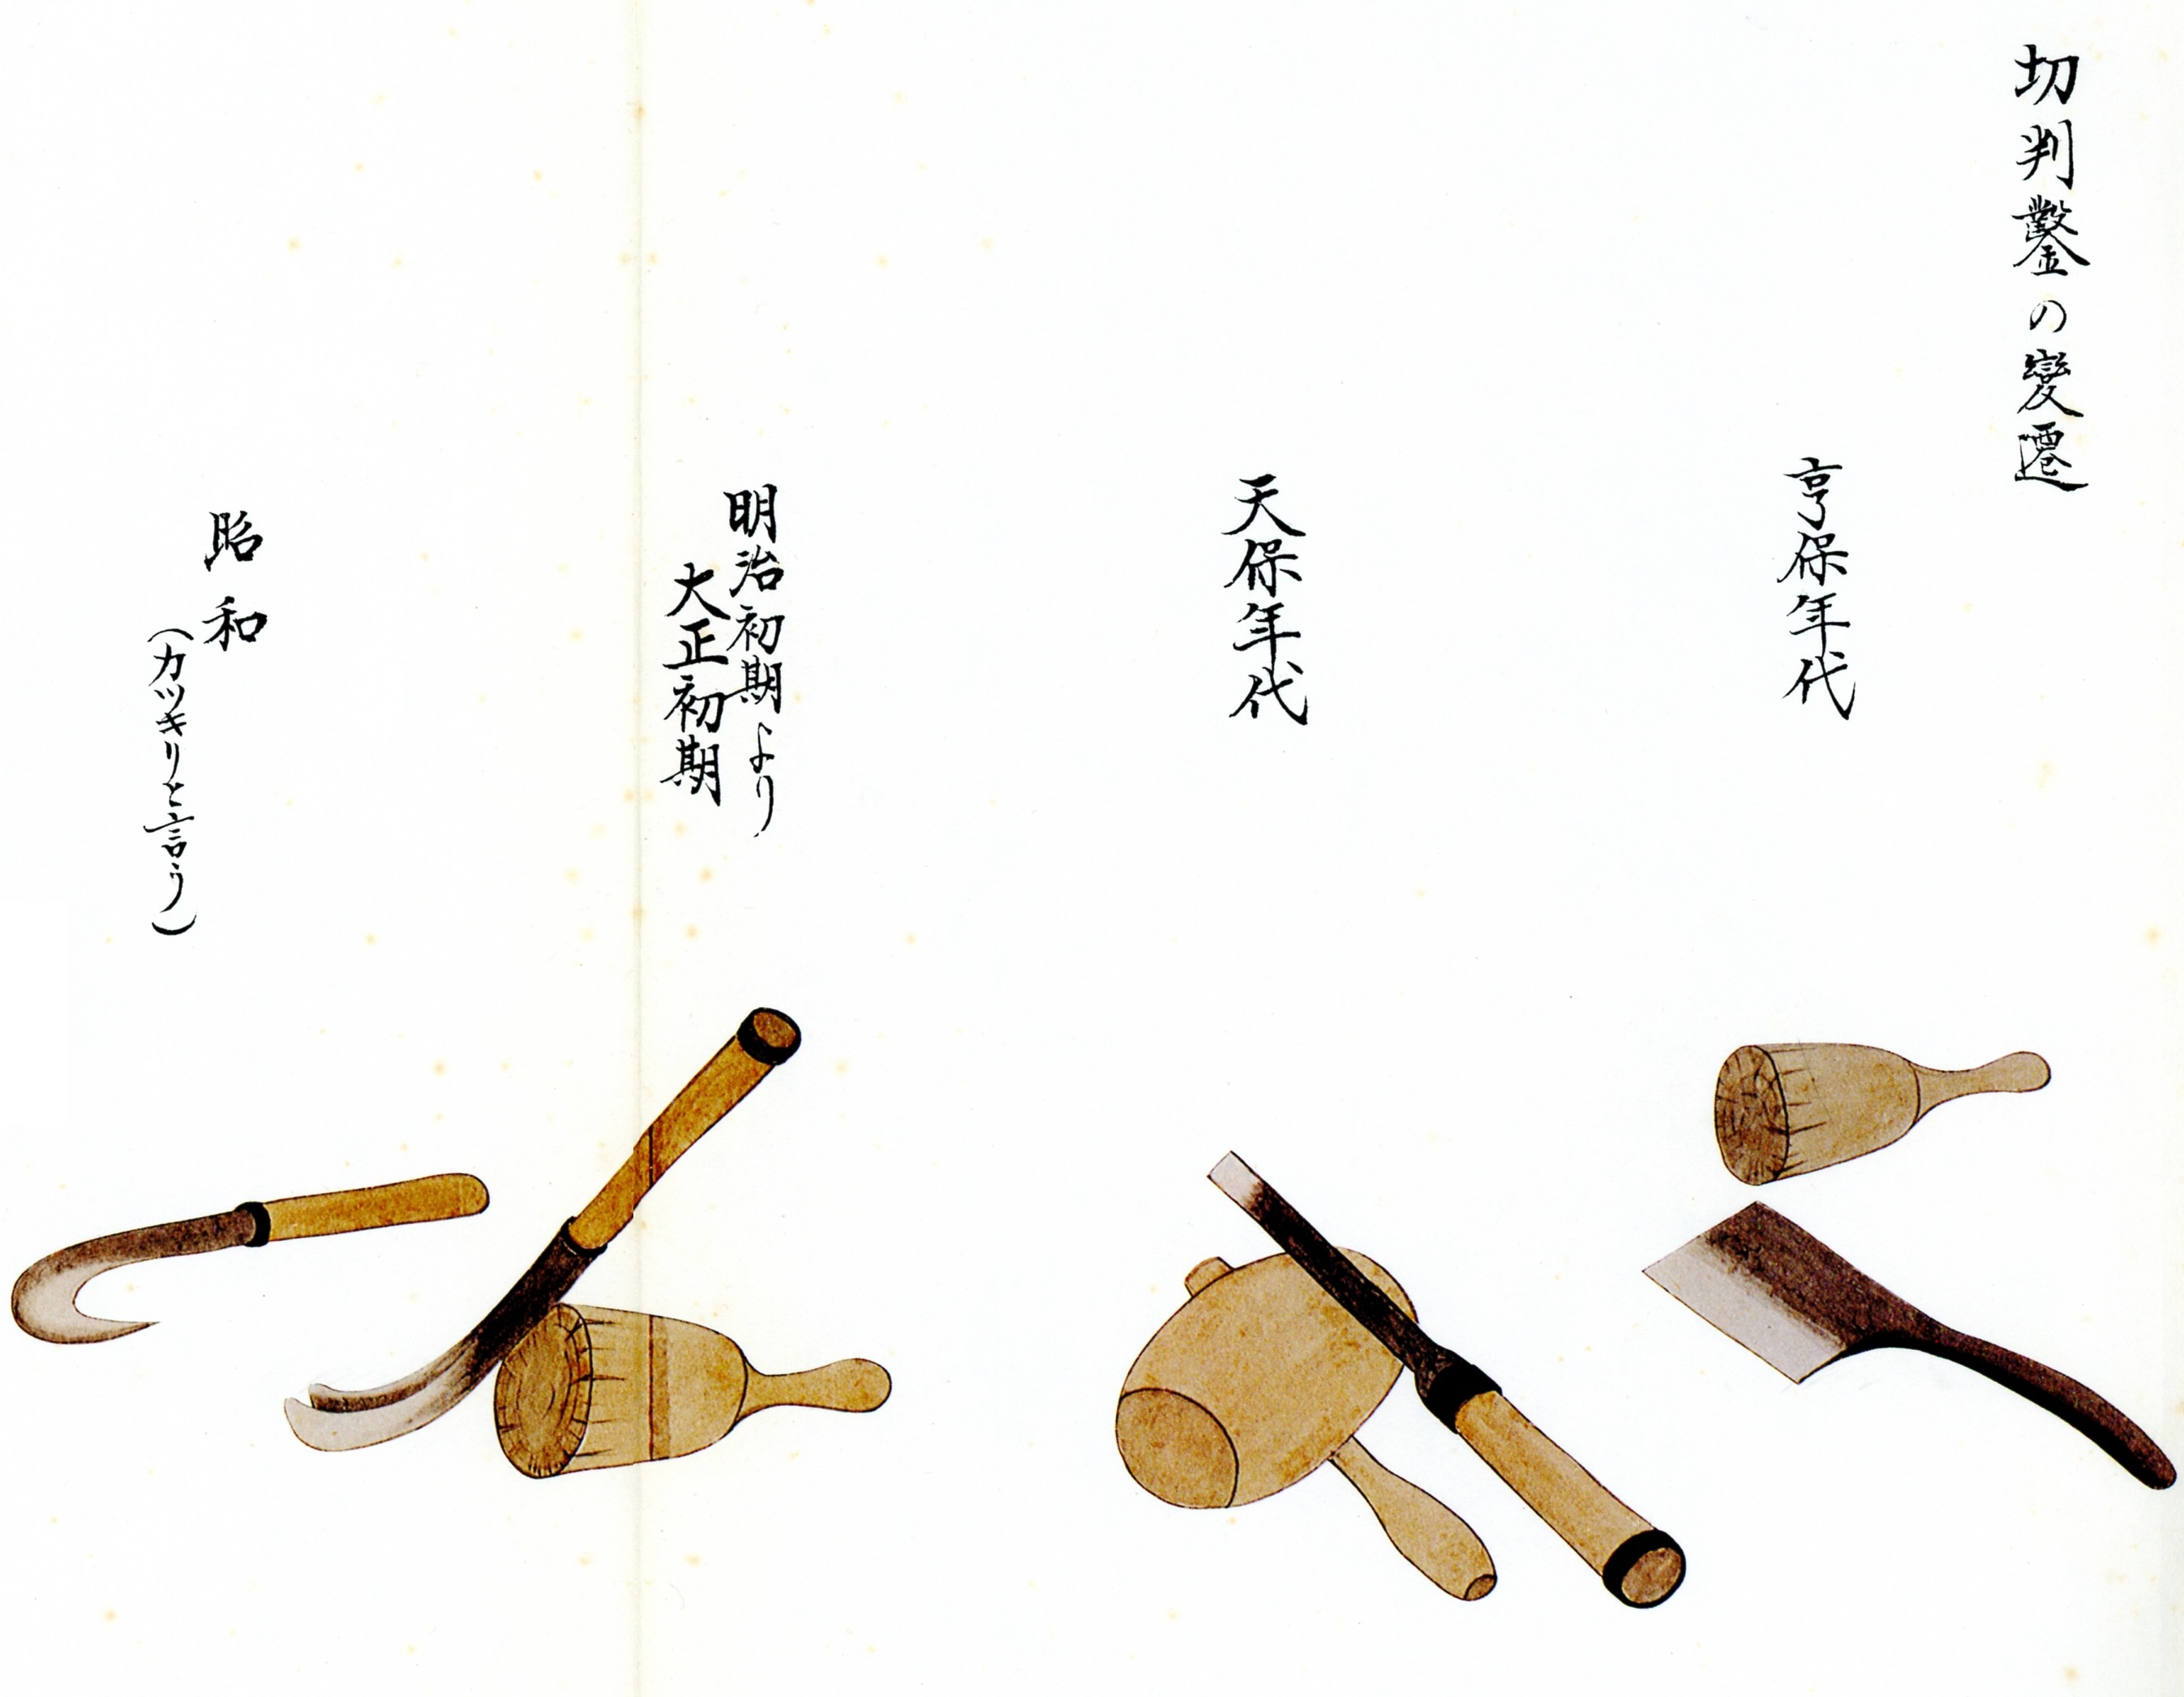 切判鑿の變遷
亨保年代
天保年代
明治初期より
大正初期
昭和
(カツキリと言う)